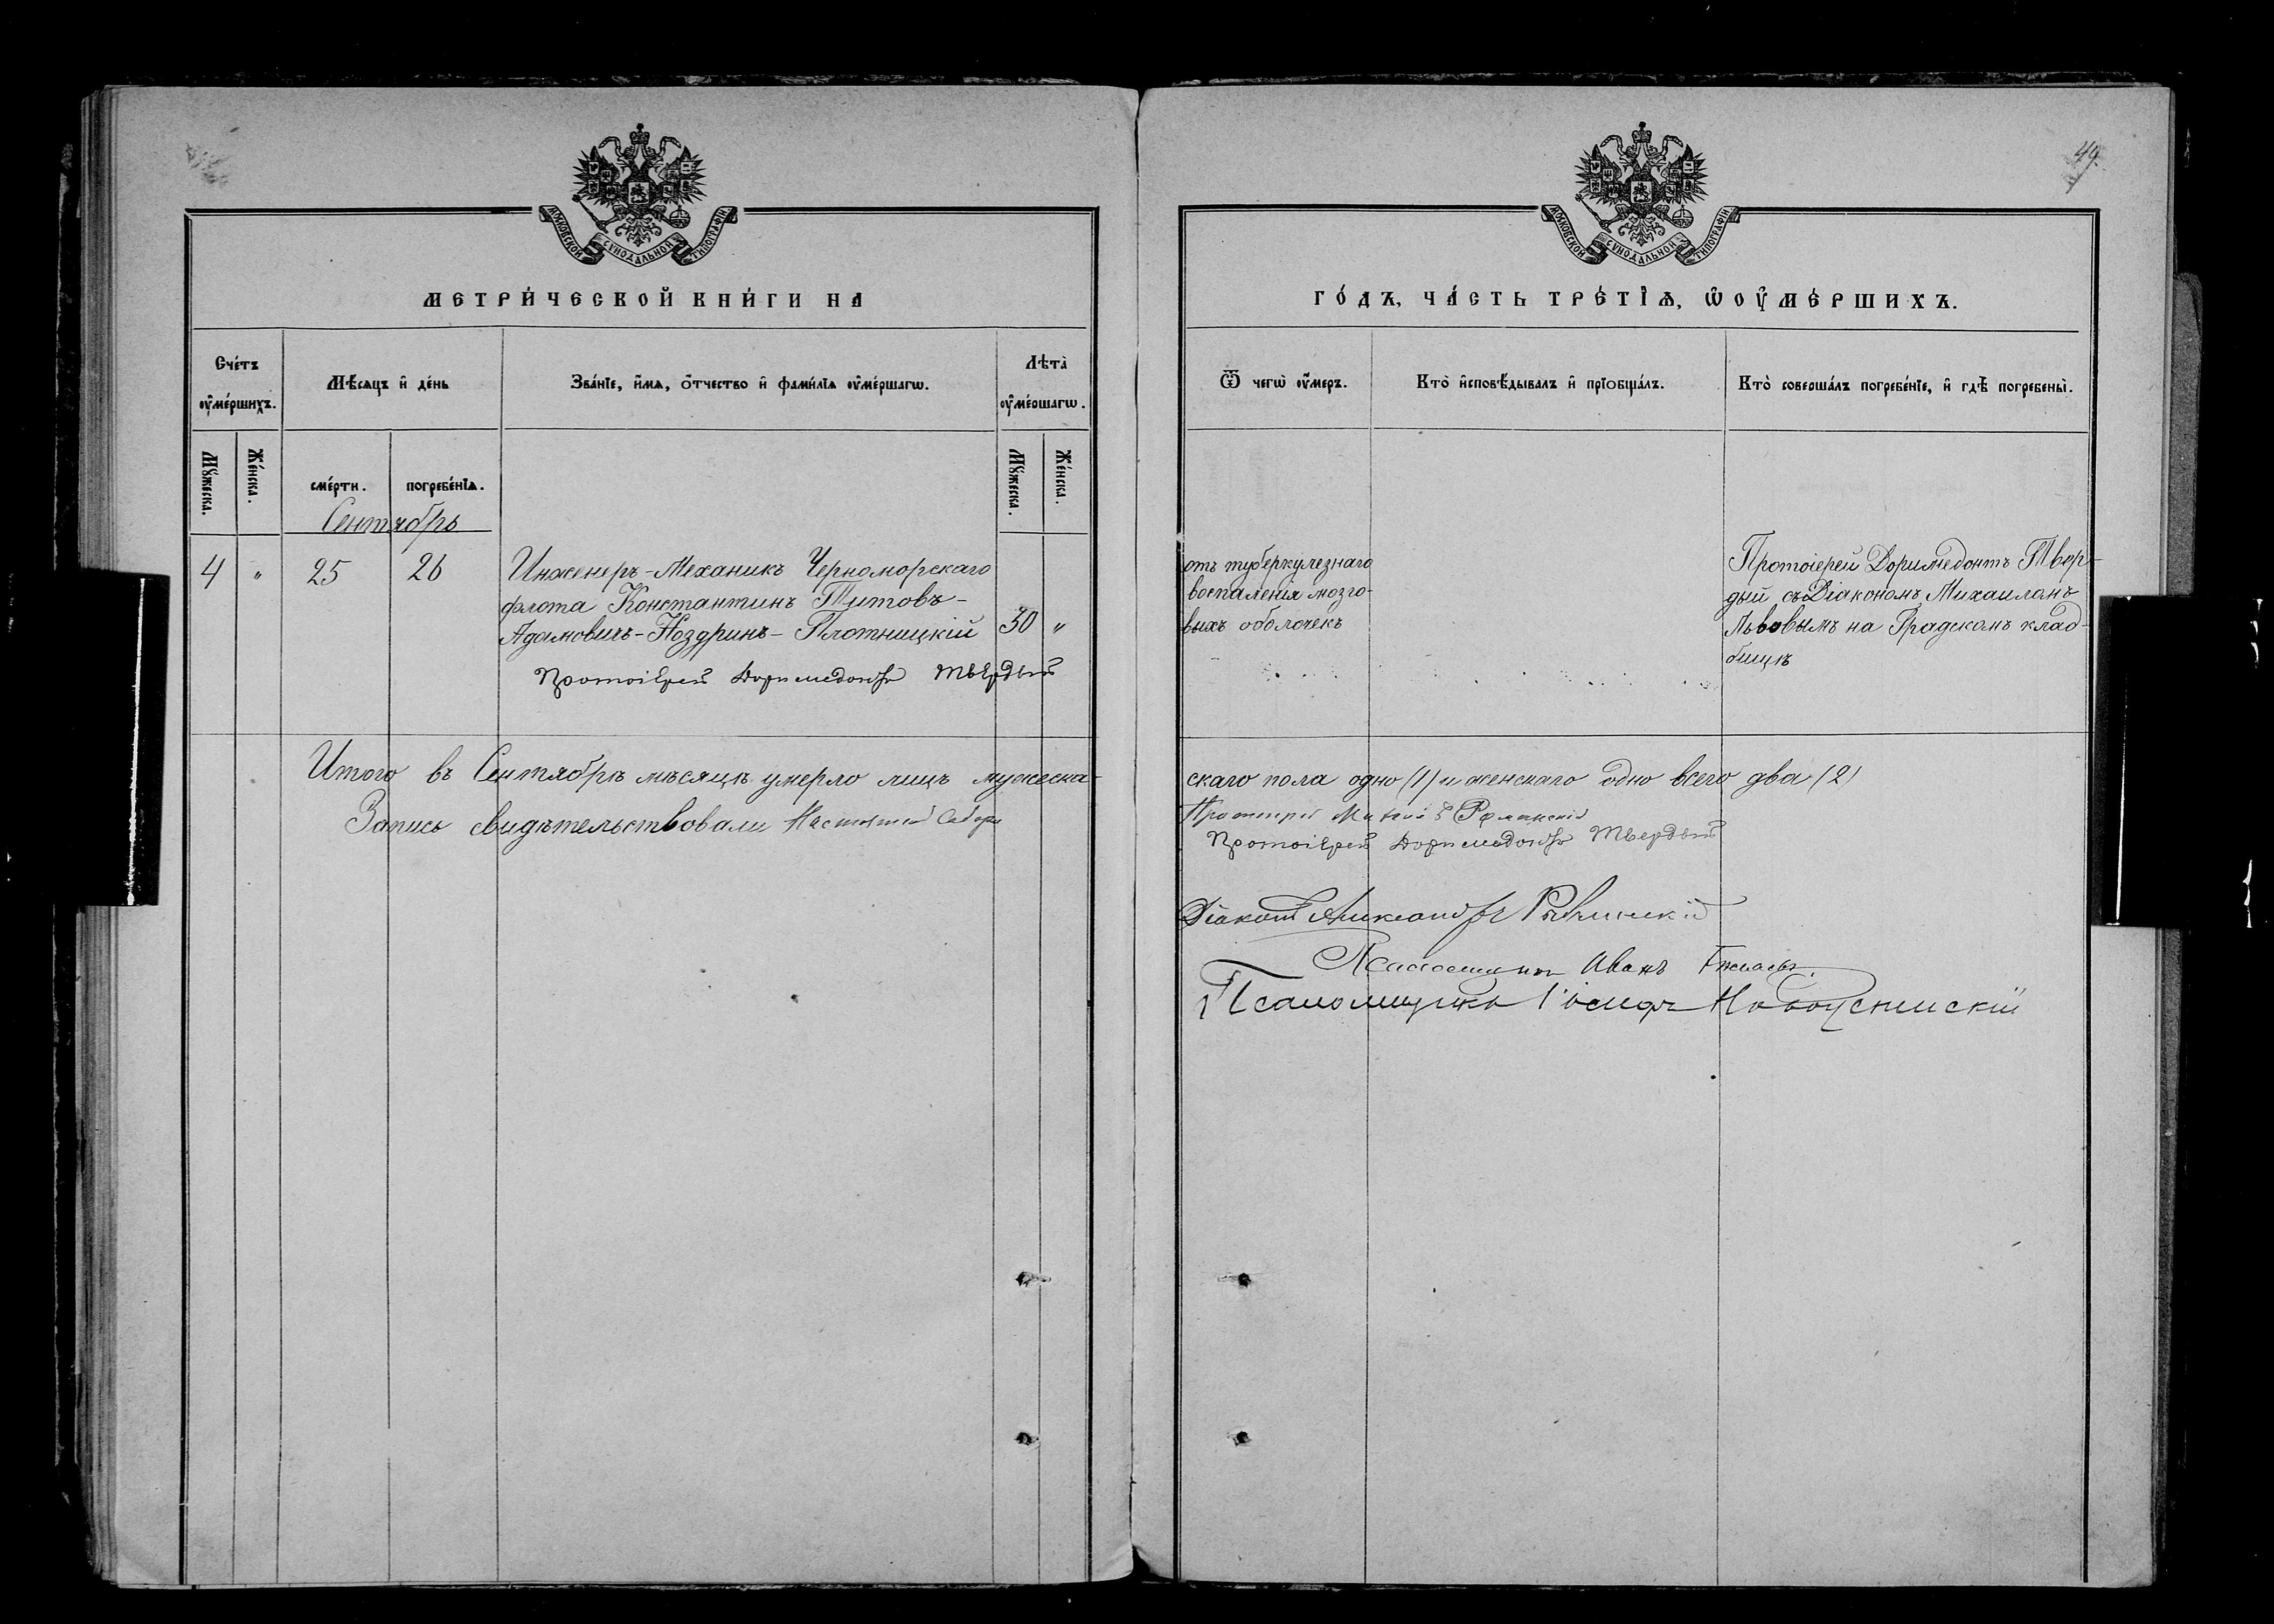 49.
МОСКОВСКОЙ СѴНОДАЛЬНОЙ ТИПОГРАФІИ
МЕТРИ́ЧЕСКОЙ КНИ́ГИ НА
Счетъ ᲂу҆ме́ршихъ.
Мѣ́сяцъ и҆ де́нь
Зва́нїе, и҆́мѧ, ѻ҆́тчество и҆ фами́лїѧ ᲂу҆ме́ршагѡ.
Лѣта̀ ᲂу҆ме́ршагѡ.
Мꙋ́жеска.
Же́нска.
сме́рти.
погребе́нїѧ.
Мꙋ́жеска.
Же́нска.
Сентябрь
4 " 25 26 Инженеръ-Механикъ Черноморскаго
флота Константинъ Титовъ-
Адамовичъ-Ноздринъ-Плотницкій 30 "
Протоіерей Доримедонтъ Твердый
Итого въ Сентябрѣ мѣсяцѣ умерло лицъ мужеска-
Запись свидѣтельствовали Настоятель Собора
МОСКОВСКОЙ СѴНОДАЛЬНОЙ ТИПОГРАФІИ
ГО́ДЪ, ЧА́СТЬ ТРЕ́ТЇѦ, Ѡ҆ ОУ҆МЕ́РШИХЪ.
Ѿ чегѡ̀ ᲂу҆́меръ.
Кто̀ и҆сповѣ́дывалъ и҆ прїобща́лъ.
Кто̀ соверша́лъ погребе́нїе, и҆ гдѣ̀ погребены̀.
отъ туберкулезнаго
воспаленія мозго-
выхъ оболочекъ
Протоіерей Доримедонтъ Твер-
дый съ Діакономъ Михаиломъ
Львовымъ на Градскомъ клад-
бищѣ
скаго пола одно (1) и женскаго одно всего два (2)
Протоіерей
Протоіерей Доримедонтъ Твердый
Діаконъ Александръ
Псаломщикъ Иванъ
Псаломщикъ Іосифъ